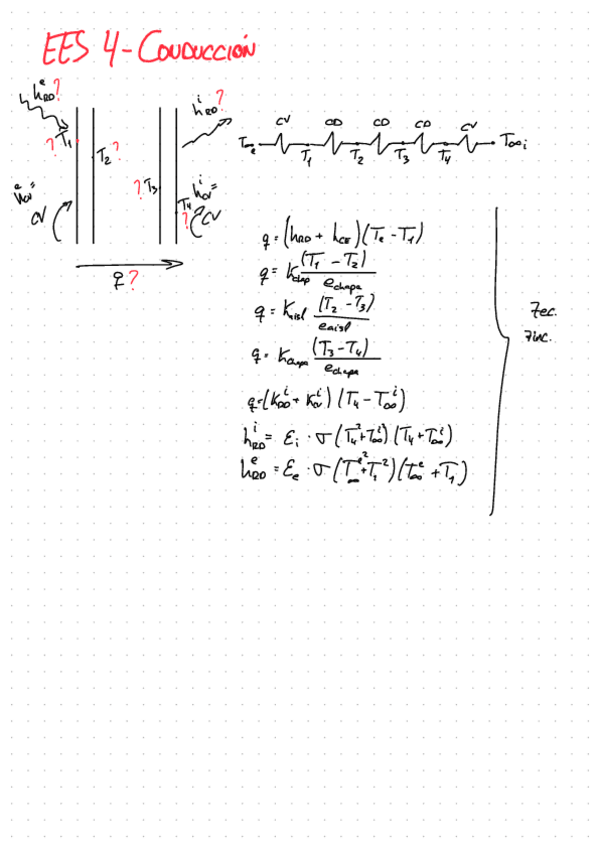 EES 4 - CONDUCCIÓN
h_RD^e ?
h_RD^i ?
? T1
T2 ?
? T3
T4 ?
h_CV^e =
CV
h_CV^i =
CV
q ?
CV CD CD CD CV
T∞e T1 T2 T3 T4 T∞i
q = (h_RD + h_CE)(Te - T1)
q = K_chap (T1 - T2) / e_chapa
q = K_aisl (T2 - T3) / e_aisl
q = K_chapa (T3 - T4) / e_chapa
q = (K_RD^i + K_CV^i)(T4 - T∞^i)
h_RD^i = εi · σ(T4^2 + T∞^i2)(T4 + T∞^i)
h_RD^e = εe · σ(T∞^e2 + T1^2)(T∞^e + T1)
7 ec.
7 inc.